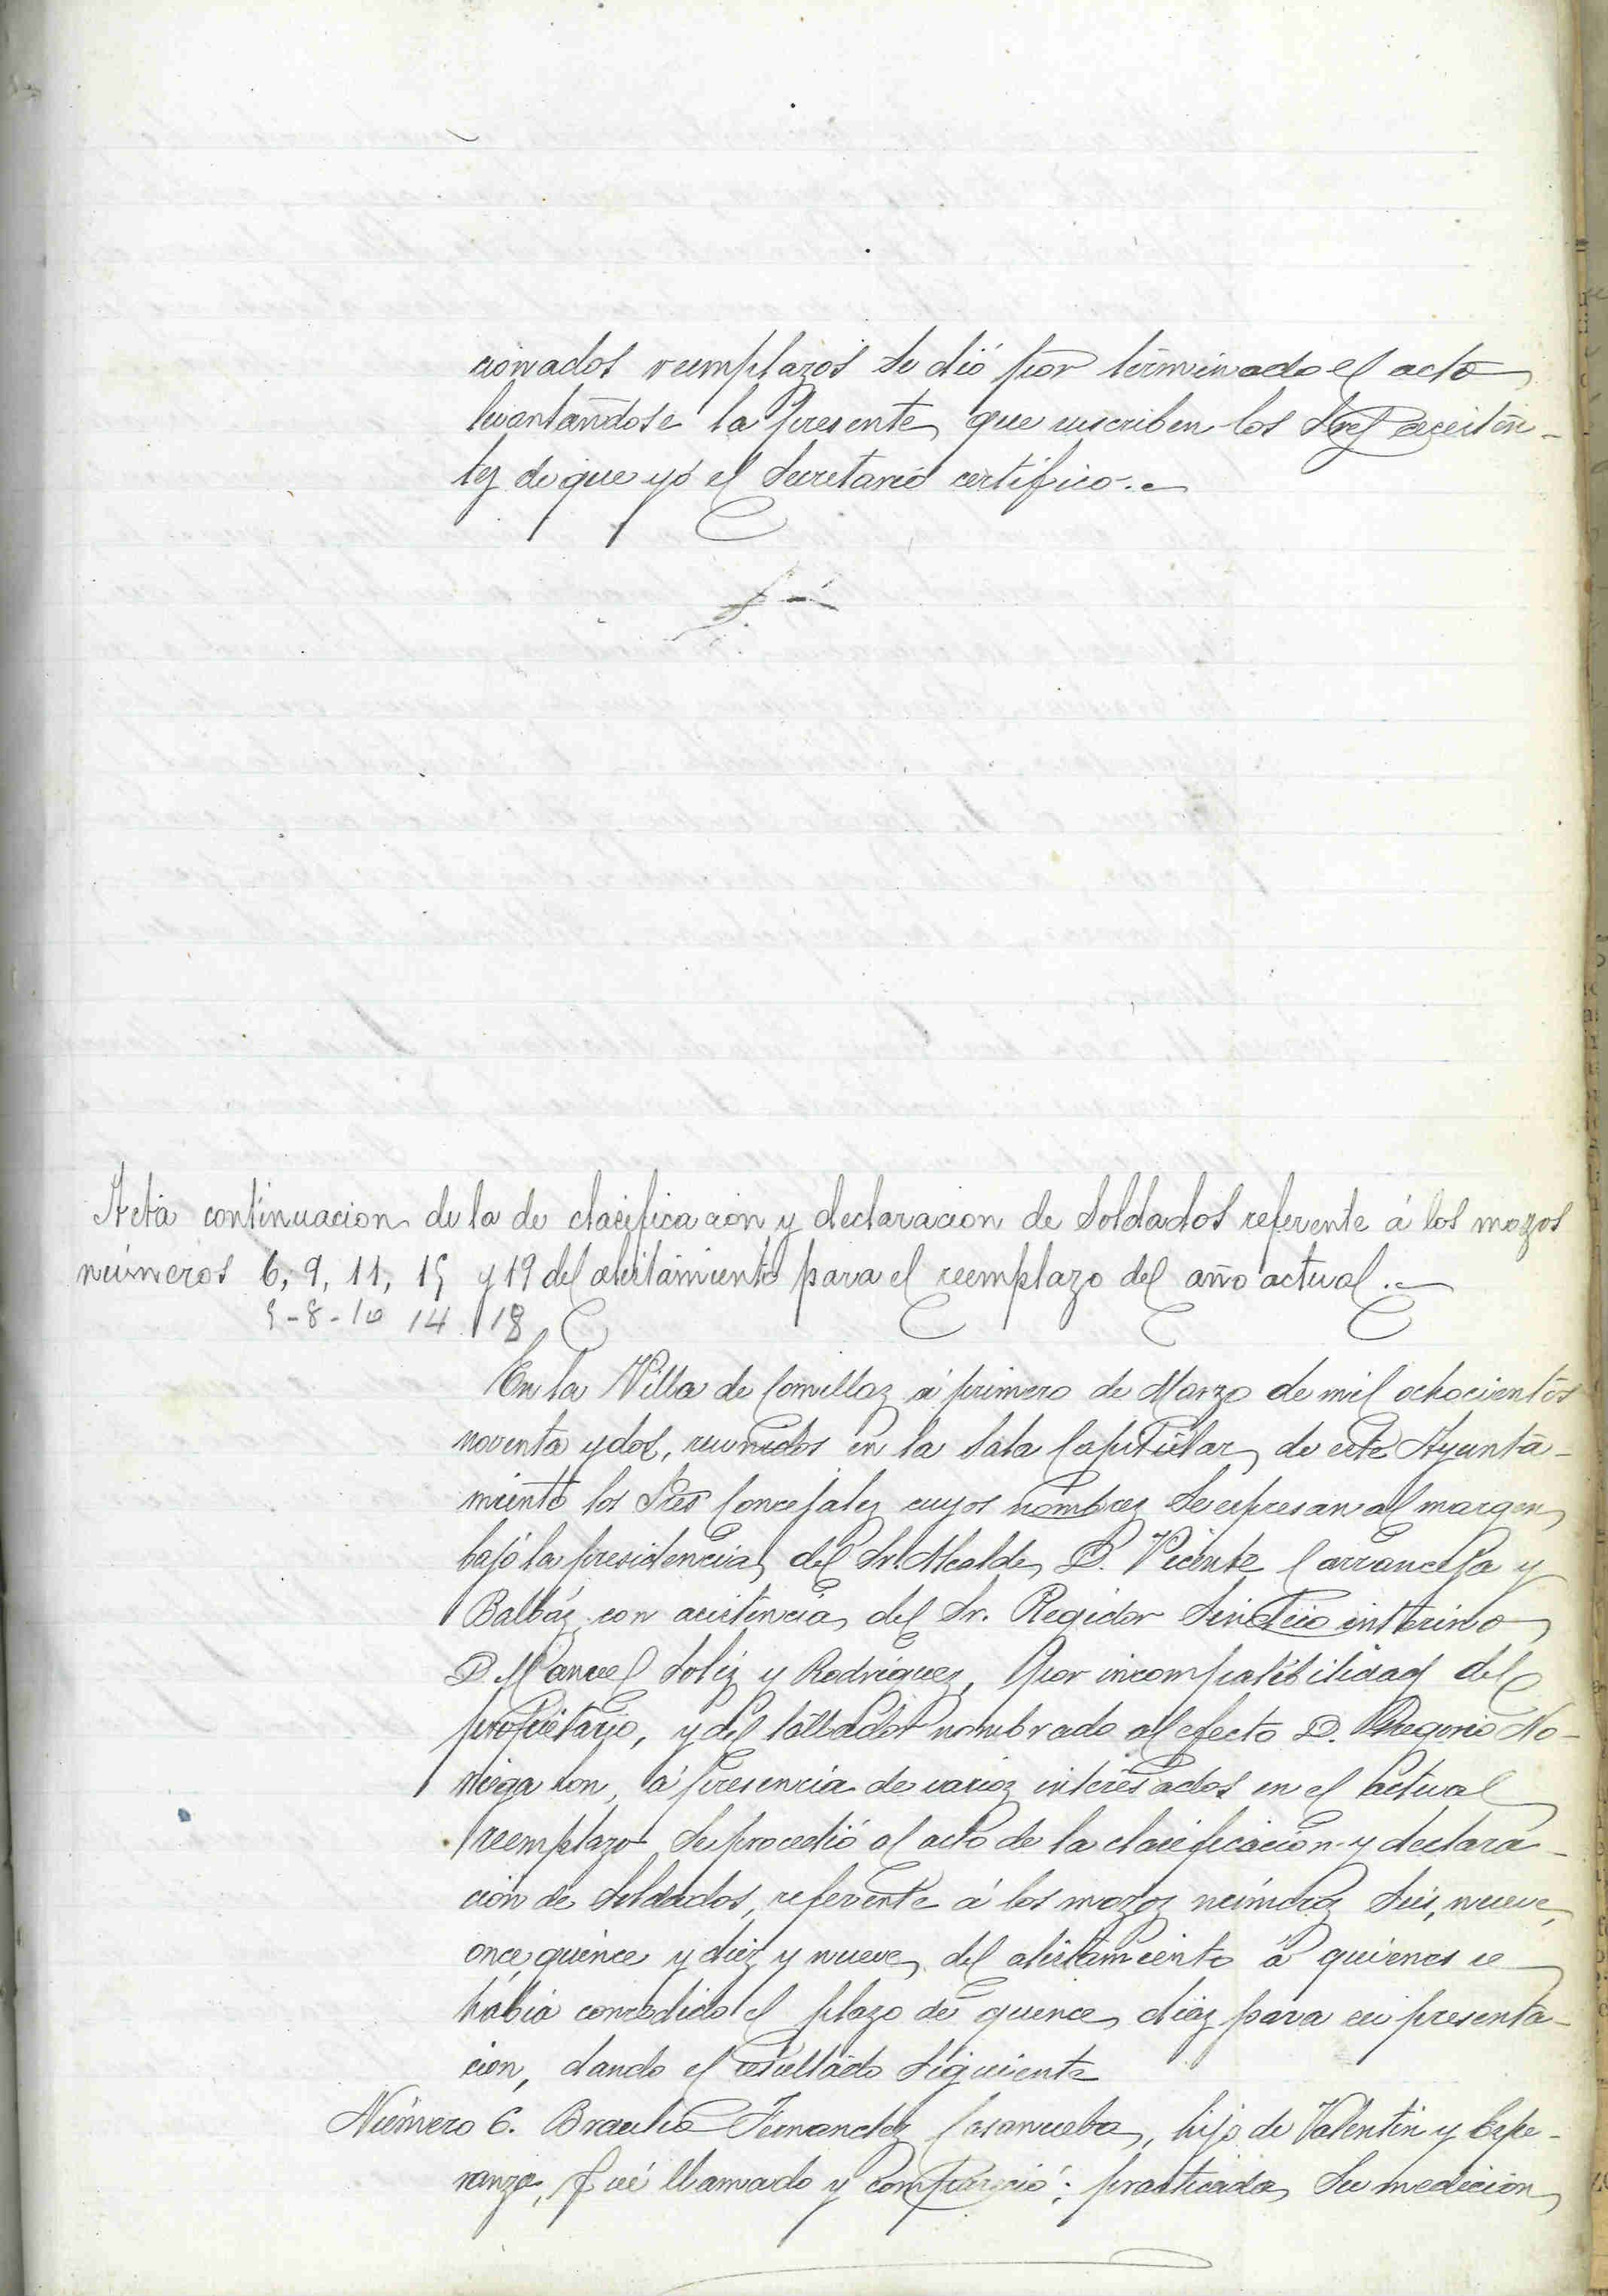 cionados reemplazos se dió por terminado el acto
levantandose la presente que suscriben los Sres asisten-
tes de que yo el Secretario certifico.
Acta continuacion de la de clasificacion y declaracion de Soldados referente á los mozos
números 6, 9, 11, 15 y 19 del alistamiento para el reemplazo del año actual.
5-8-10 14 18
En la Villa de Comillas á primero de Marzo de mil ochocientos
noventa y dos, reunidos en la Sala Capitular de este Ayunta-
miento los Sres Concejales cuyos nombres se espresan al margen
bajo la presidencia del Sr. Alcalde D. Vicente Carranceja y
Balbás con asistencia del Sr. Regidor Sindico interino
D. Manuel Solis y Rodriguez, por incompatibilidad del
propietario, y del tallador nombrado al efecto D. Gregorio No-
riega con, á presencia de varios interesados en el actual
reemplazo se procedió al acto de la clasificacion y declara-
cion de Soldados, referente á los mozos números seis, nueve,
once quince y diez y nueve del alistamiento á quienes se
habia concedido el plazo de quince dias para su presenta-
cion, dando el resultado siguiente
Número 6. Braulio Fernandez Casanueba, hijo de Valentin y Espe-
ranza, fué llamado y compareció: practicada su medicion